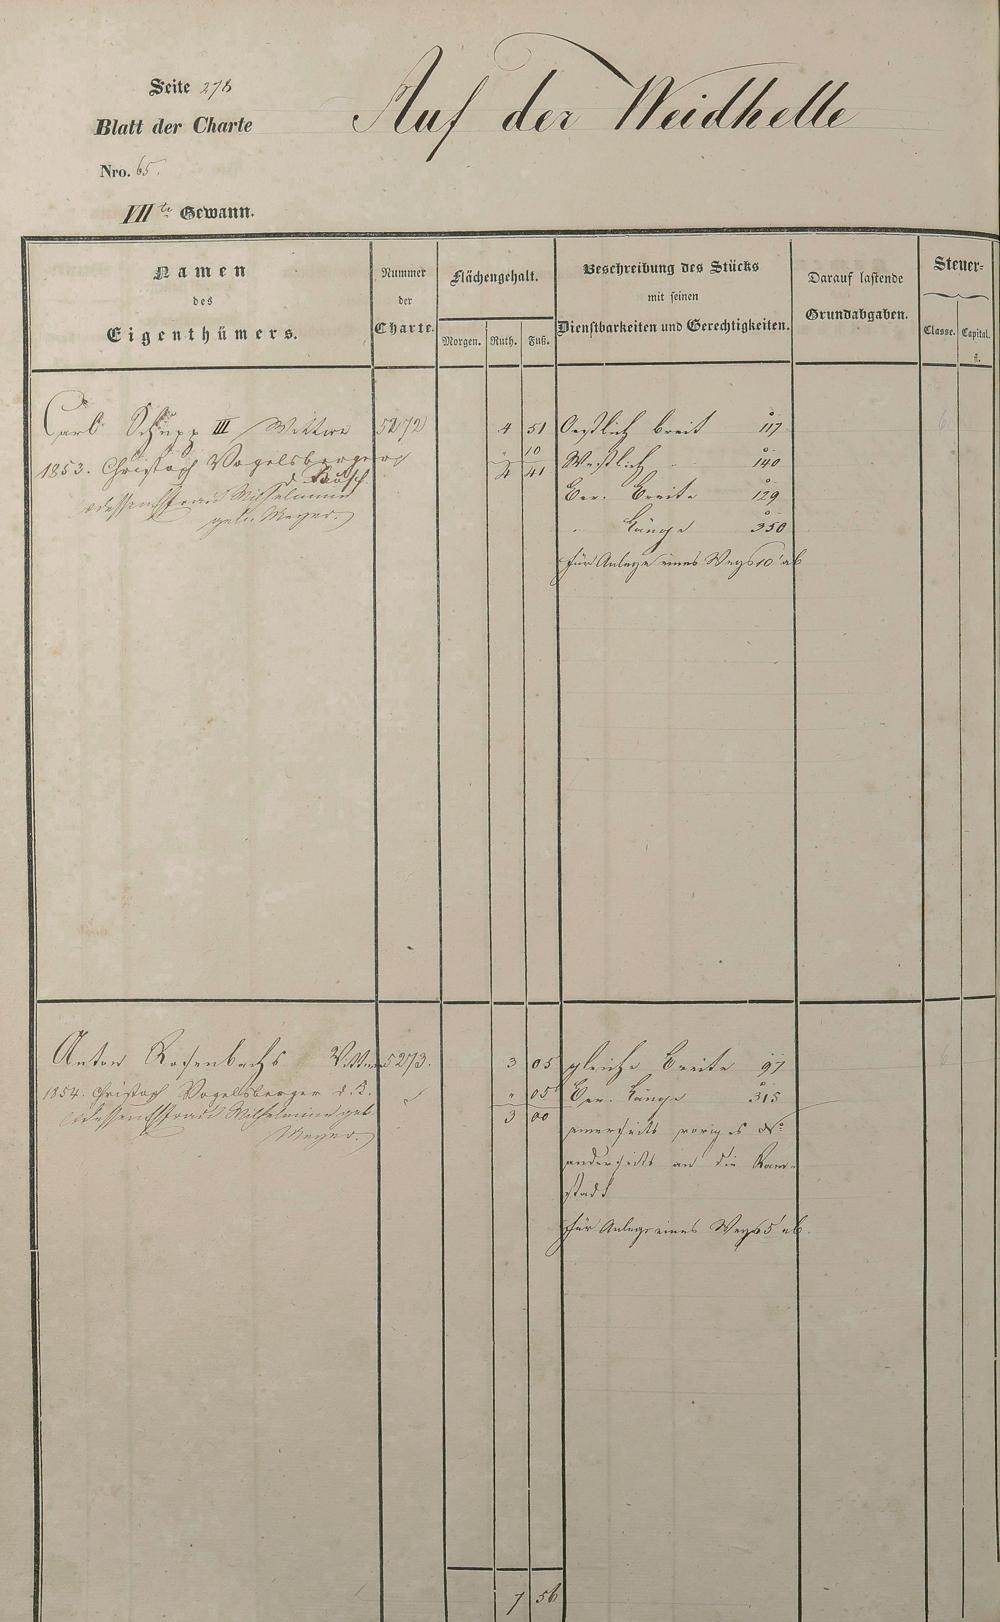 Seite 278
Auf der Weidhelle
Blatt der Charte
Nro. 65.
VII te Gewann.
Namen des Eigenthümers.
Nummer der Charte.
Flächengehalt.
Morgen. Ruth. Fuß.
Beschreibung des Stücks mit seinen Dienstbarkeiten und Gerechtigkeiten.
Darauf lastende Grundabgaben.
Steuer=
Classe. Capital.
fl.
Carl Schupp III Wittwe 5272 4 51 Oestlich breit 117
1853. Christoph Vogelsberger " 10 Westlich " 140
d. Busch 4 41
u dessen Ehefrau Wilhelmine Ber. Breite 129
geb. Meyer. " Länge 350
für Anlage eines Wegs 10' ab
Anton Rosenbachs Wittwe 5273. 3 05 gleiche Breite 97
1854. Christoph Vogelsberger d. B. " 05 Ber. Länge 315
u dessen Ehefrau Wilhelmine geb. 3 00
Meyer. einerseits voriges No
anderseits an die
für Anlage eines Wegs 5' ab.
7 56